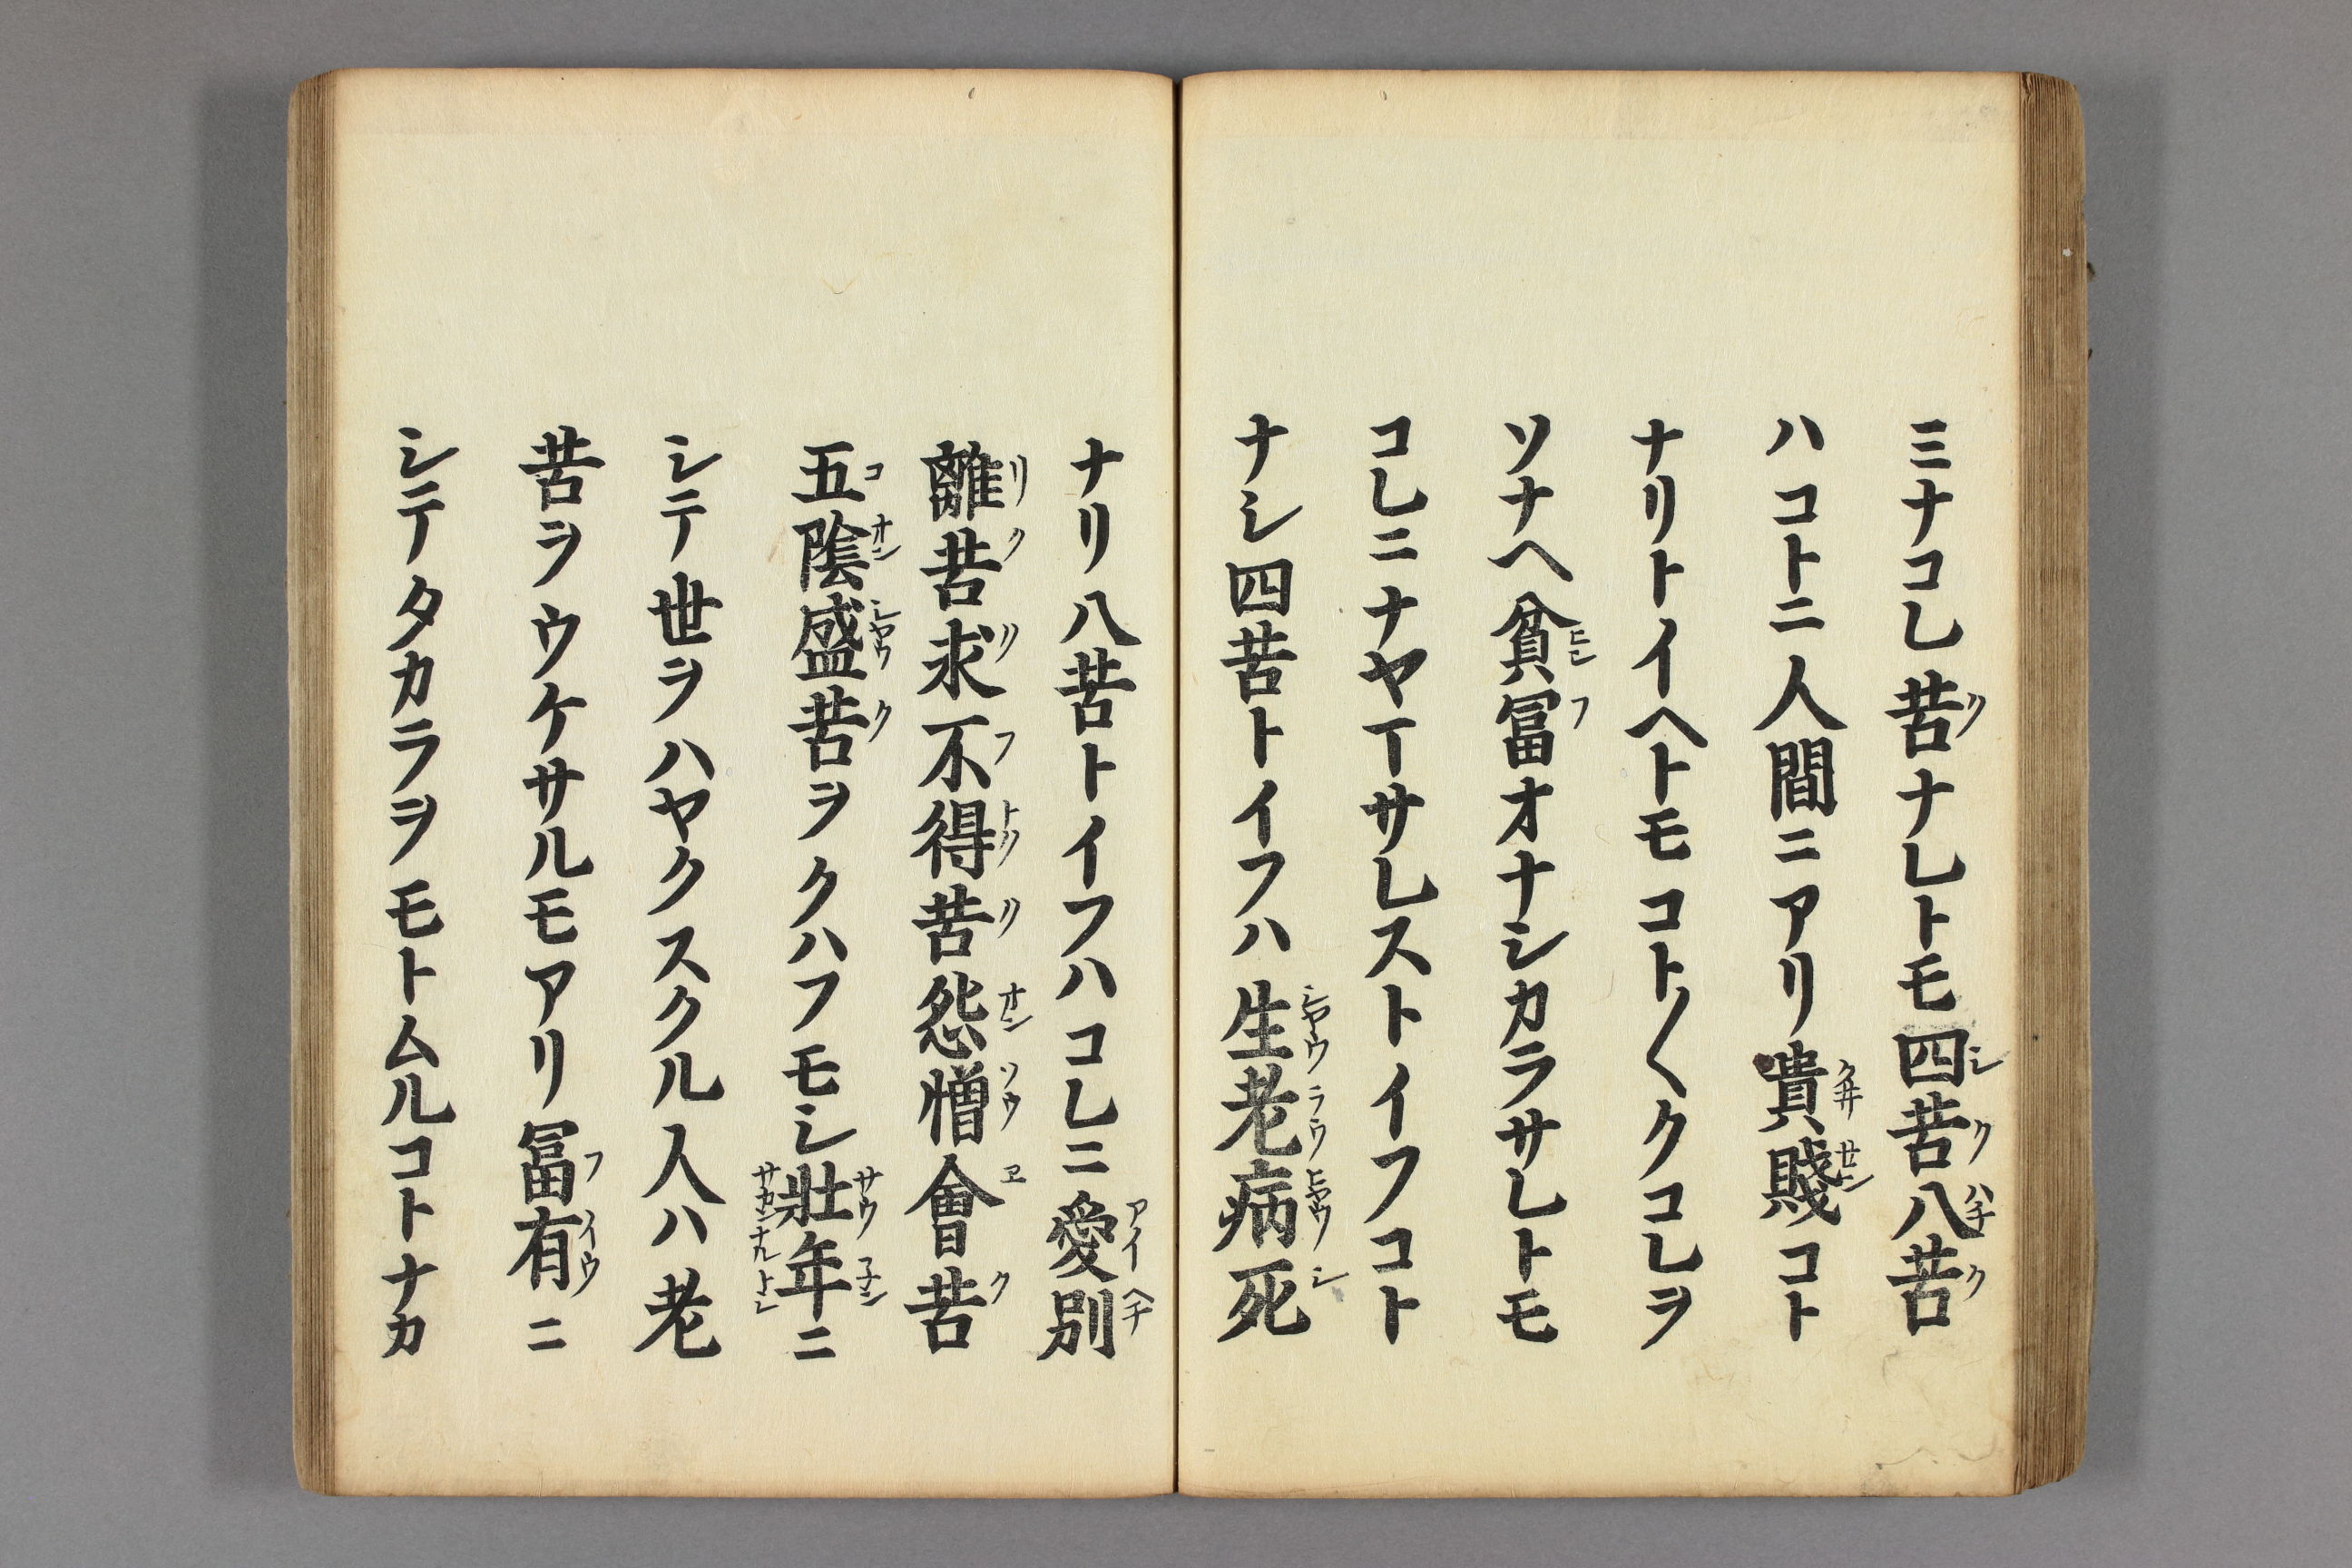 ミナコレ苦ナレトモ四苦八苦
ハコトニ人間ニアリ貴賤コト
ナリトイヘトモコト〱クコレヲ
ソナヘ貧冨オナシカラサレトモ
コレニナヤマサレストイフコト
ナシ四苦トイフハ生老病死
ナリ八苦トイフハコレニ愛別
離苦求不得苦怨憎會苦
五陰盛苦ヲクハフモシ壯年ニ
シテ世ヲハヤクスクル人ハ老
苦ヲウケサルモアリ冨有ニ
シテタカラヲモトムルコトナカ